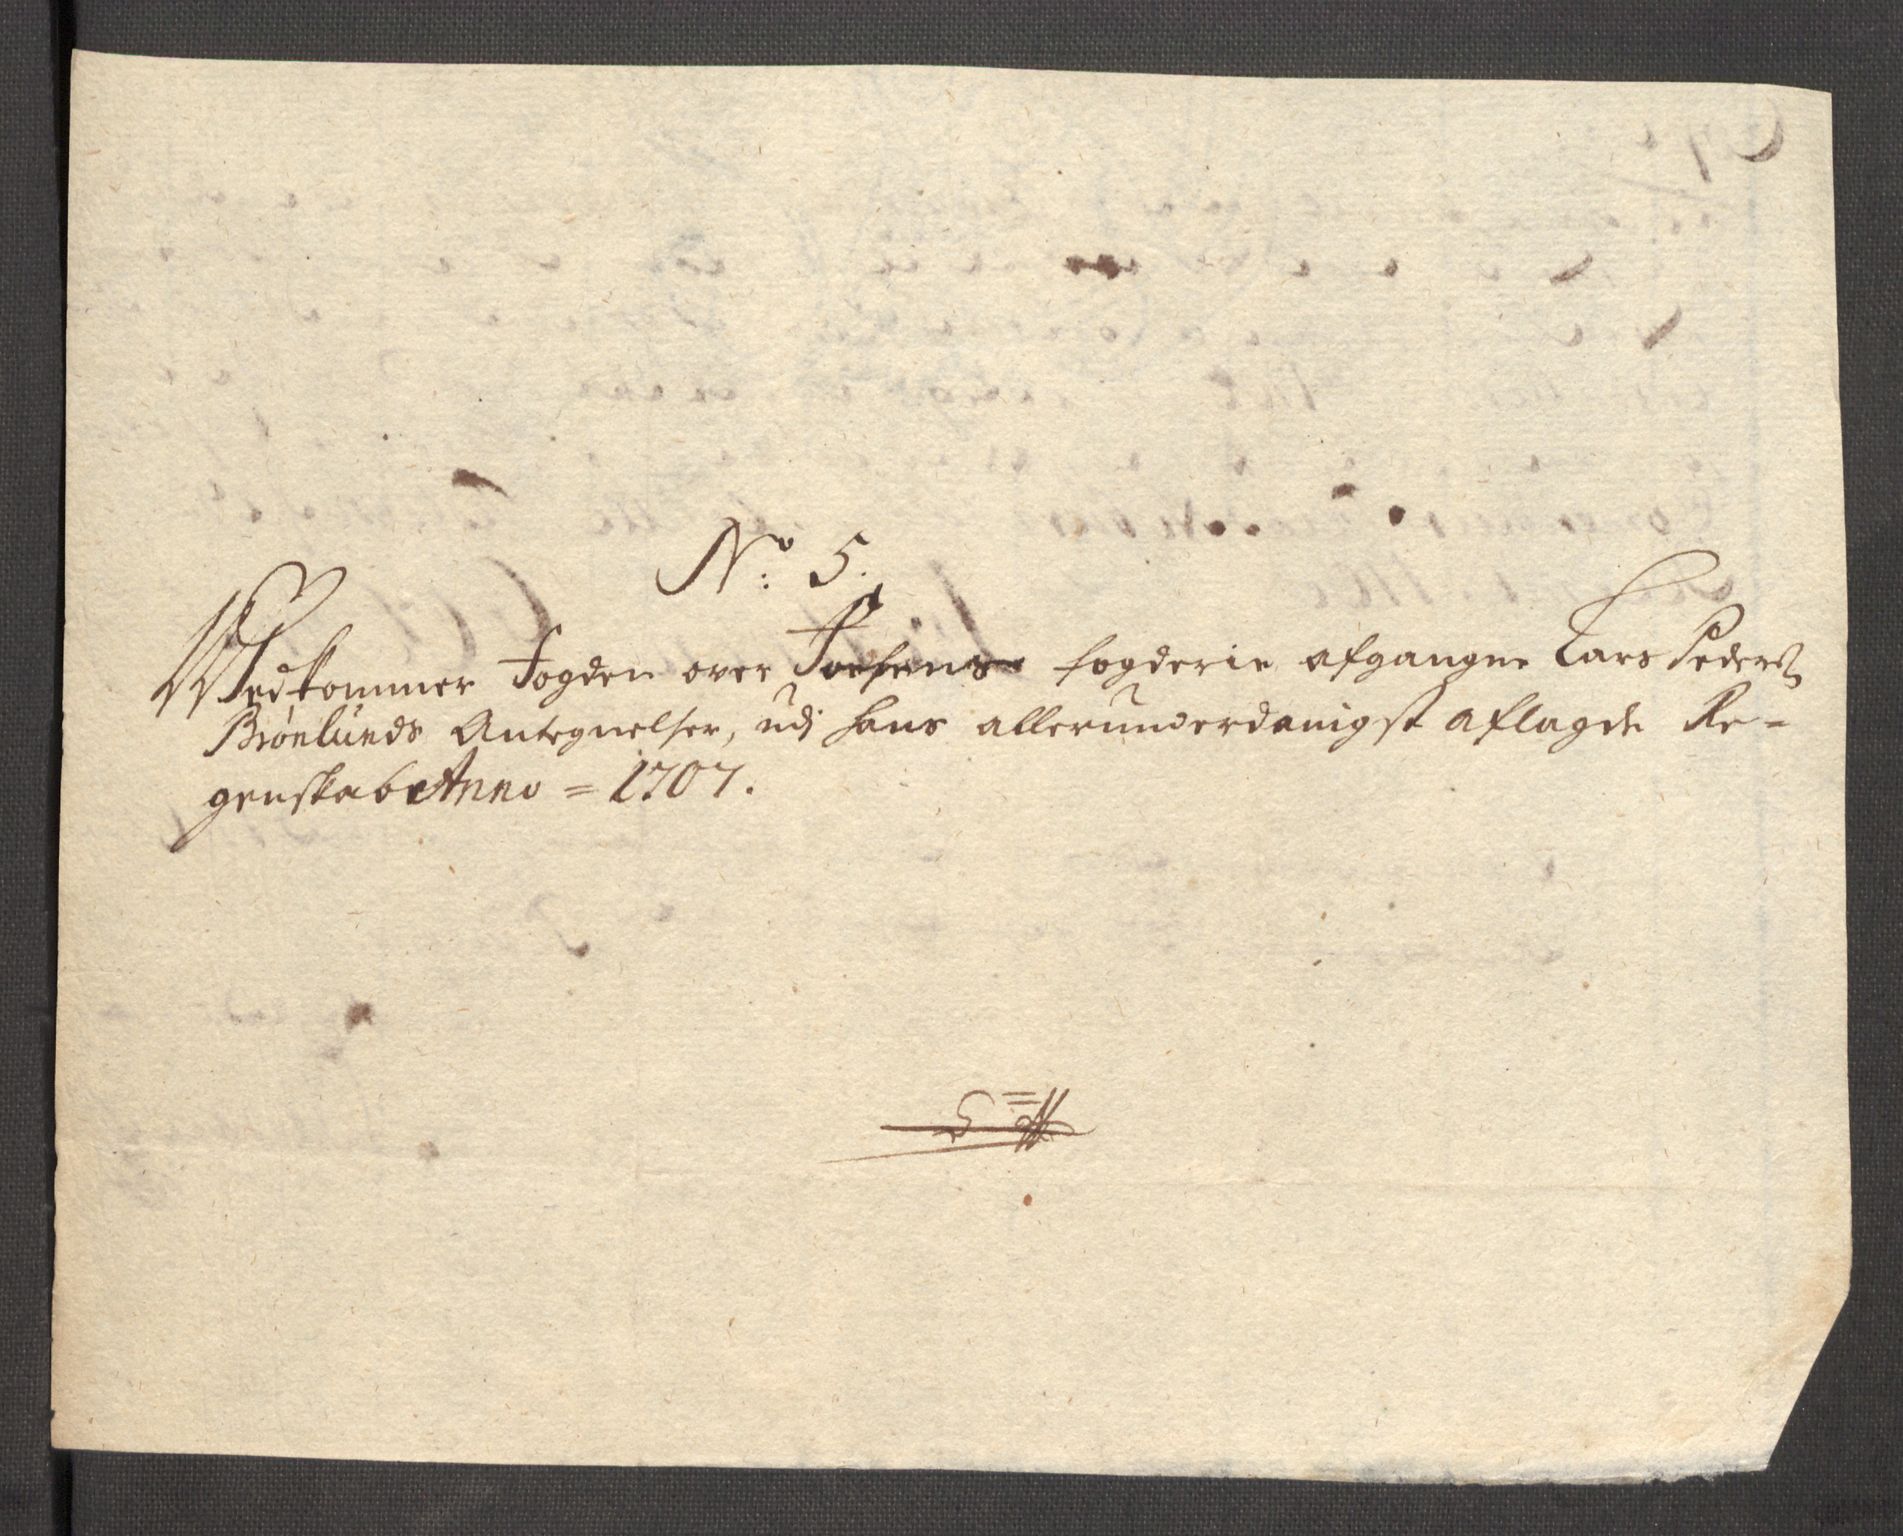 No: 5.
Vedkommer Fogden over Fosens fogderie afgangne Lars Peders
Brønlunds Antegnelser, udj hans allerunderdanigst aflagde Re=
genskab Anno = 1707.